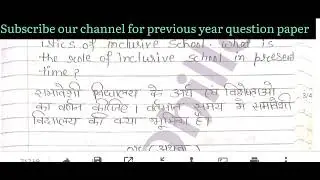 Subscribe our channel for previous year question paper
istics of inclusive school. What is
the role of inclusive school in present
time?
समावेशी विद्यालय के अर्थ एवं विशेषताओं
का वर्णन कीजिए। वर्तमान समय में समावेशी
विद्यालय की क्या भूमिका है।
(अथवा)